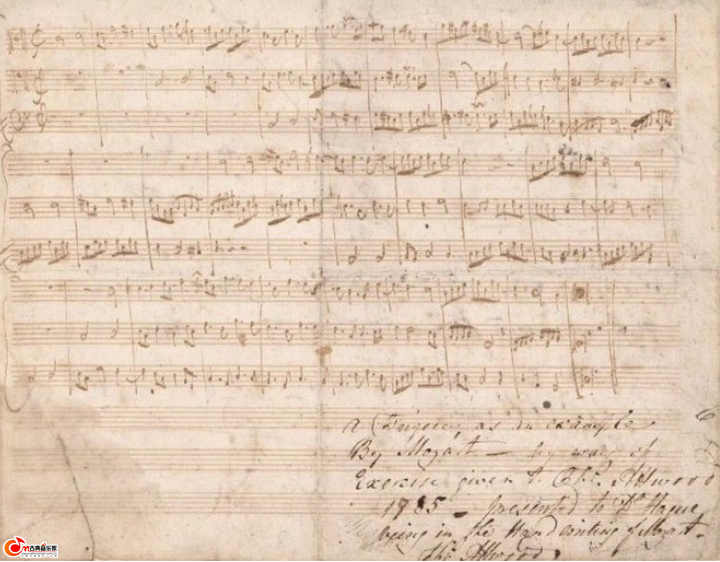 a Fugue as an example
By Mozart — by way of
Exercise given to Thos. Attwood
1785 — presented to Dr Hague
being in the Hand writing of Mozart.
Thos. Attwood
古典音乐家